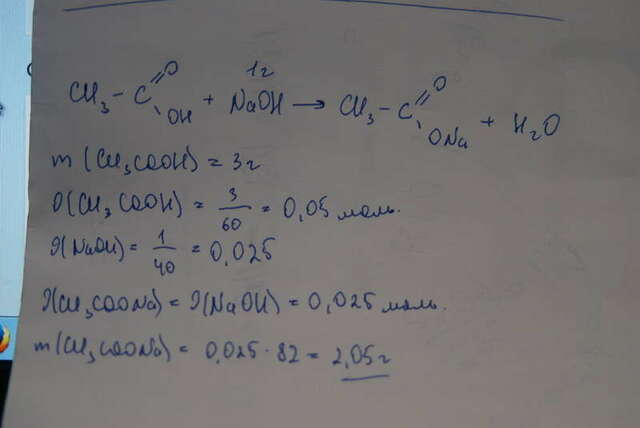 1г
CH₃ – C =O OH + NaOH → CH₃ – C =O ONa + H₂O
m (CH₃COOH) = 3г
ϑ(CH₃COOH) = 3/60 = 0,05 моль.
ϑ(NaOH) = 1/40 = 0,025
ϑ(CH₃COONa) = ϑ(NaOH) = 0,025 моль.
m(CH₃COONa) = 0,025 · 82 = 2,05г